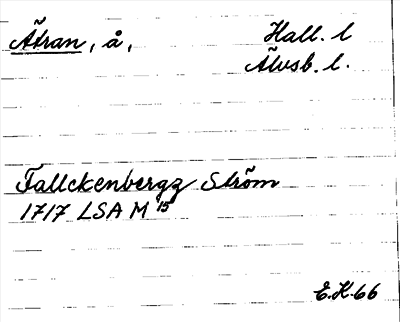 Ätran, å, Hall. l
Älvsb. l.
Fallckenbergz Ström
1717 LSA M 15
E.H. 66